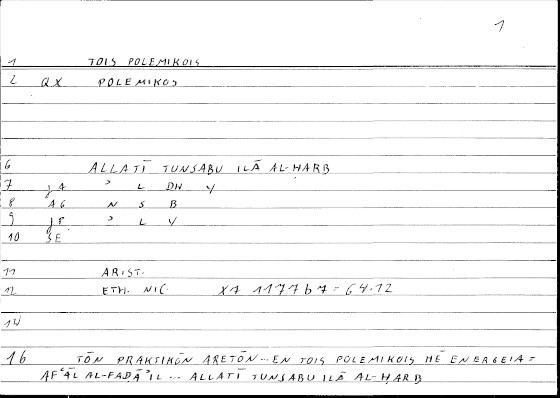 1
1 TOIS POLEMIKOIS
2 QX POLEMIKOS
6 ALLATĪ TUNSABU ILĀ AL-HARB
7 jA ʾ L DH Y
8 AG N S B
9 jP ʾ L Y
10 SE
11 ARIST.
12 ETH. NIC. X7 1177b7 = 64.12
14
16 TŌN PRAKTIKŌN ARETŌN ... EN TOIS POLEMIKOIS HĒ ENERGEIA =
AFʿĀL AL-FADĀʾIL ... ALLATĪ TUNSABU ILĀ AL-HARB